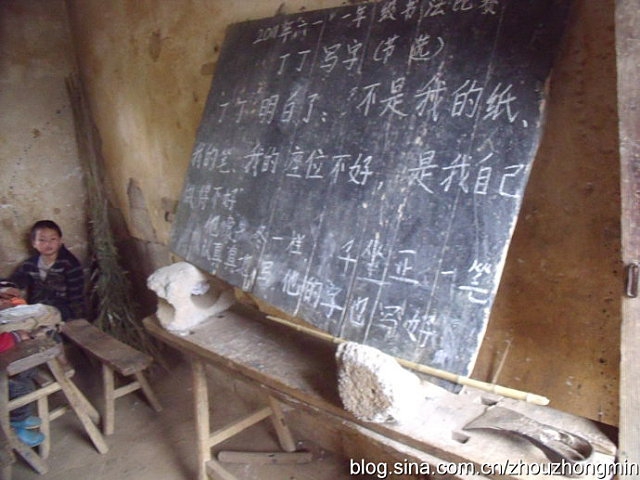 2011年六一一年级书法比赛
丁丁写字(节选)
丁丁明白了:不是我的纸、
我的笔、我的座位不好,是我自己
做得不好
他像冬冬一样 子坐正 一笔
认真真地写 他的字也写好
blog.sina.com.cn/zhouzhongmin